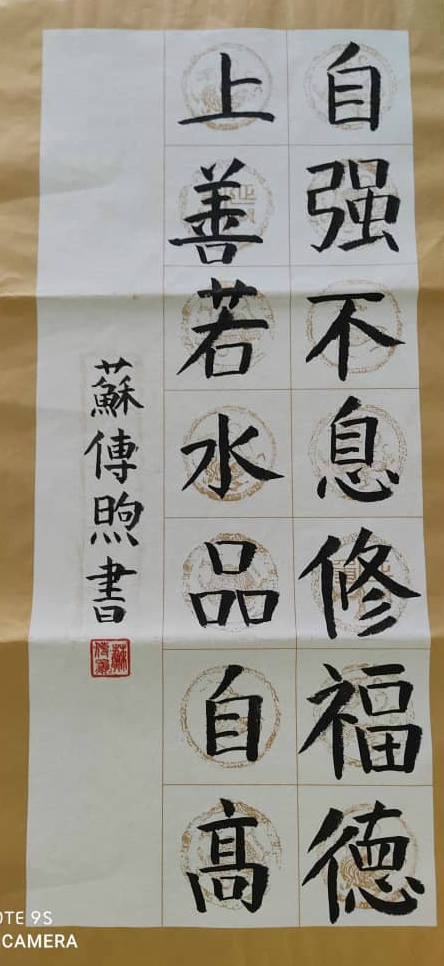 自强不息修福德
上善若水品自高
蘇傳煦書
OTE 9S
CAMERA